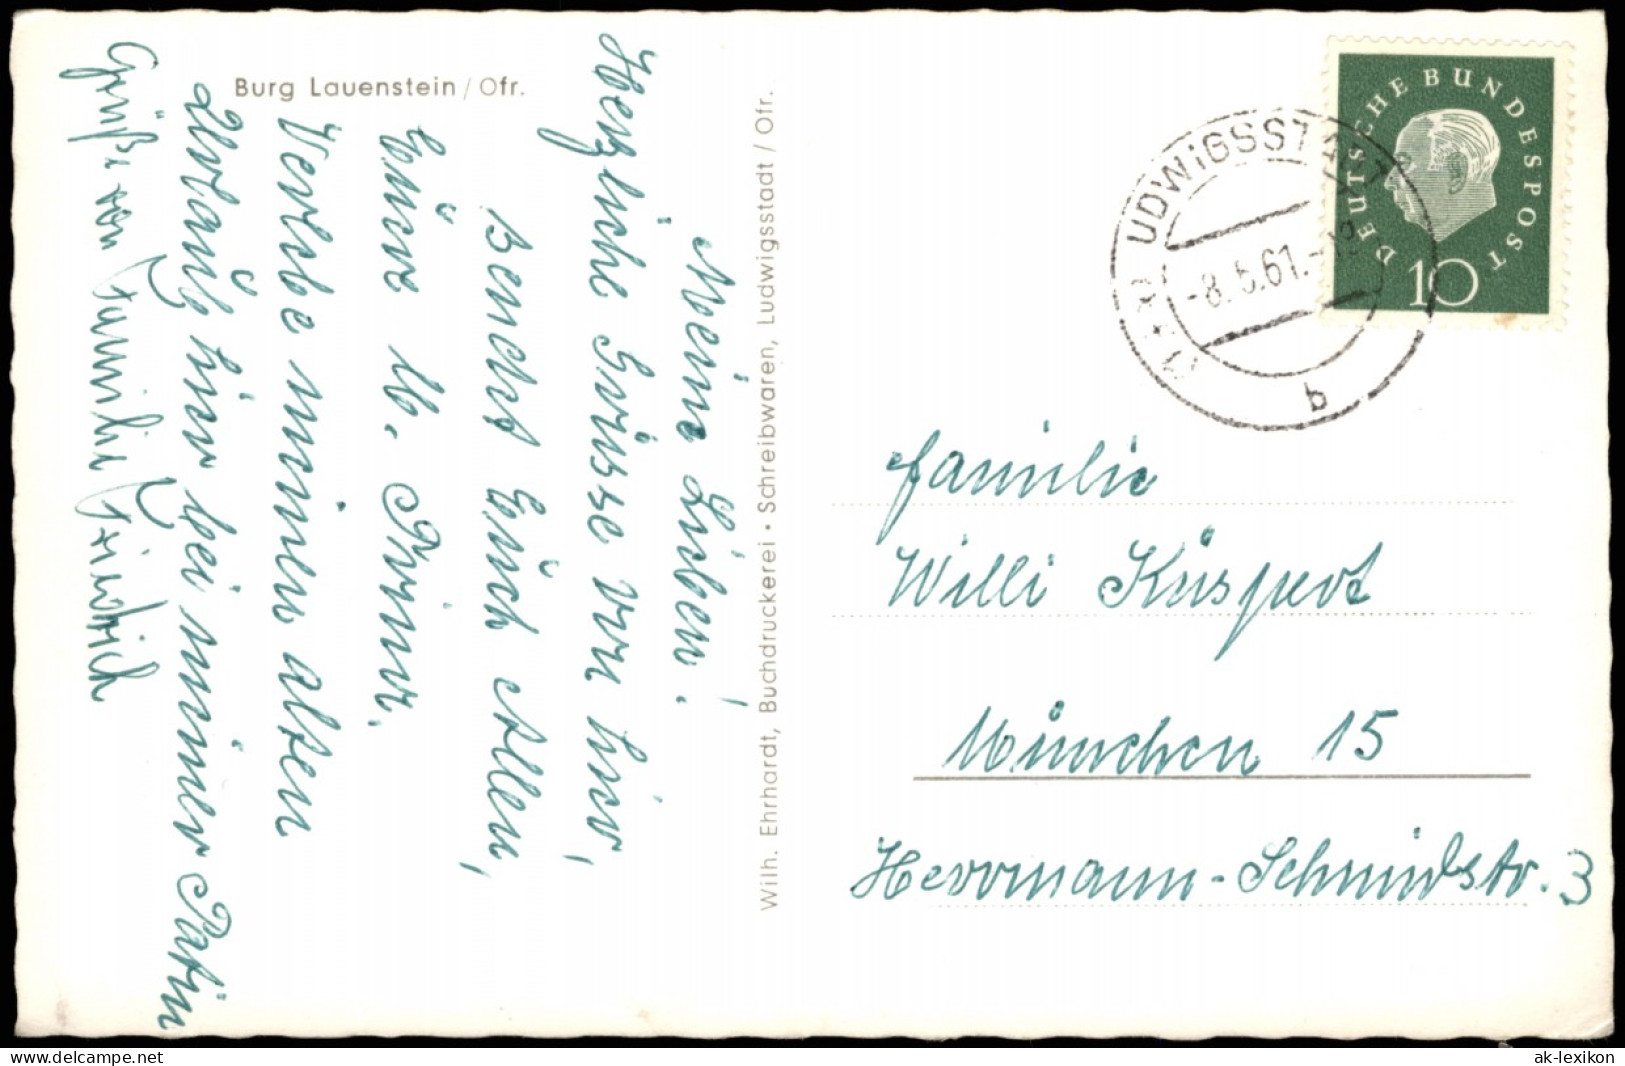 Burg Lauenstein / Ofr.
Meine Lieben!
Herzliche Grüsse von hier,
sendet Euch Allen,
Eüre lb.
Verlebe meinen alten
Urlaub hier bei meiner Patin
Grüße von Familie Friedrich
Wilh. Ehrhardt, Buchdruckerei • Schreibwaren, Ludwigsstadt / Ofr.
DEUTSCHE BUNDESPOST
10
LUDWIGSSTADT
-8. 5.61.-18
b
Familie
Willi Küspert
München 15
Herrmann-Schmidstr. 3
ak-lexikon
www.delcampe.net